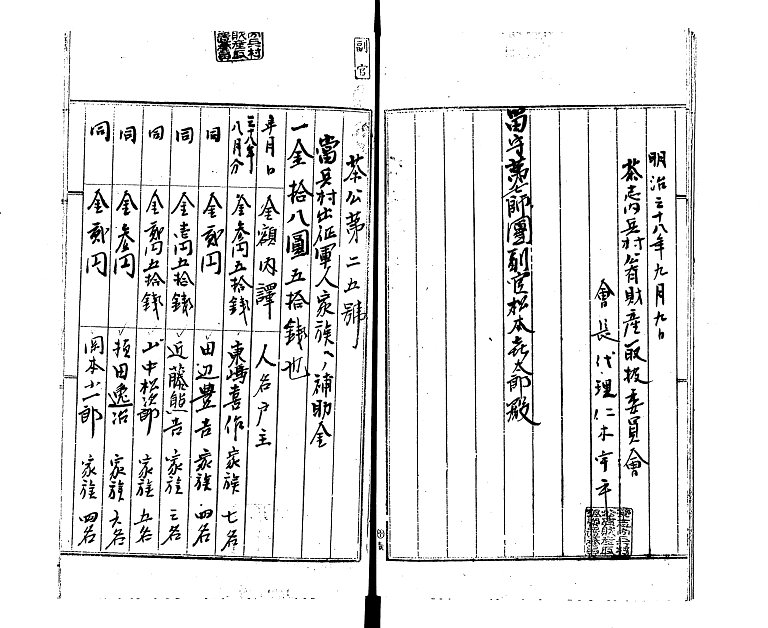 明治三十八年九月九日
茶志内兵村公有財産取扱委員會
會長代理仁木宇平
留守第七師團副官松本喜太郎殿
副官
茶公第二五號
當兵村出征軍人家族ヘノ補助金
一金拾八圓五拾錢也
年月日 金額内譯 人名戸主
三十八年八月分 金参円五拾錢 東嶋喜作 家族七名
同 金貳円 田辺豊吉 家族四名
同 金壱円五拾錢 近藤熊吉 家族三名
同 金貳円五拾錢 山中松次郎 家族五名
同 金参円 須田逸治 家族六名
同 金貳円 岡本小一郎 家族四名